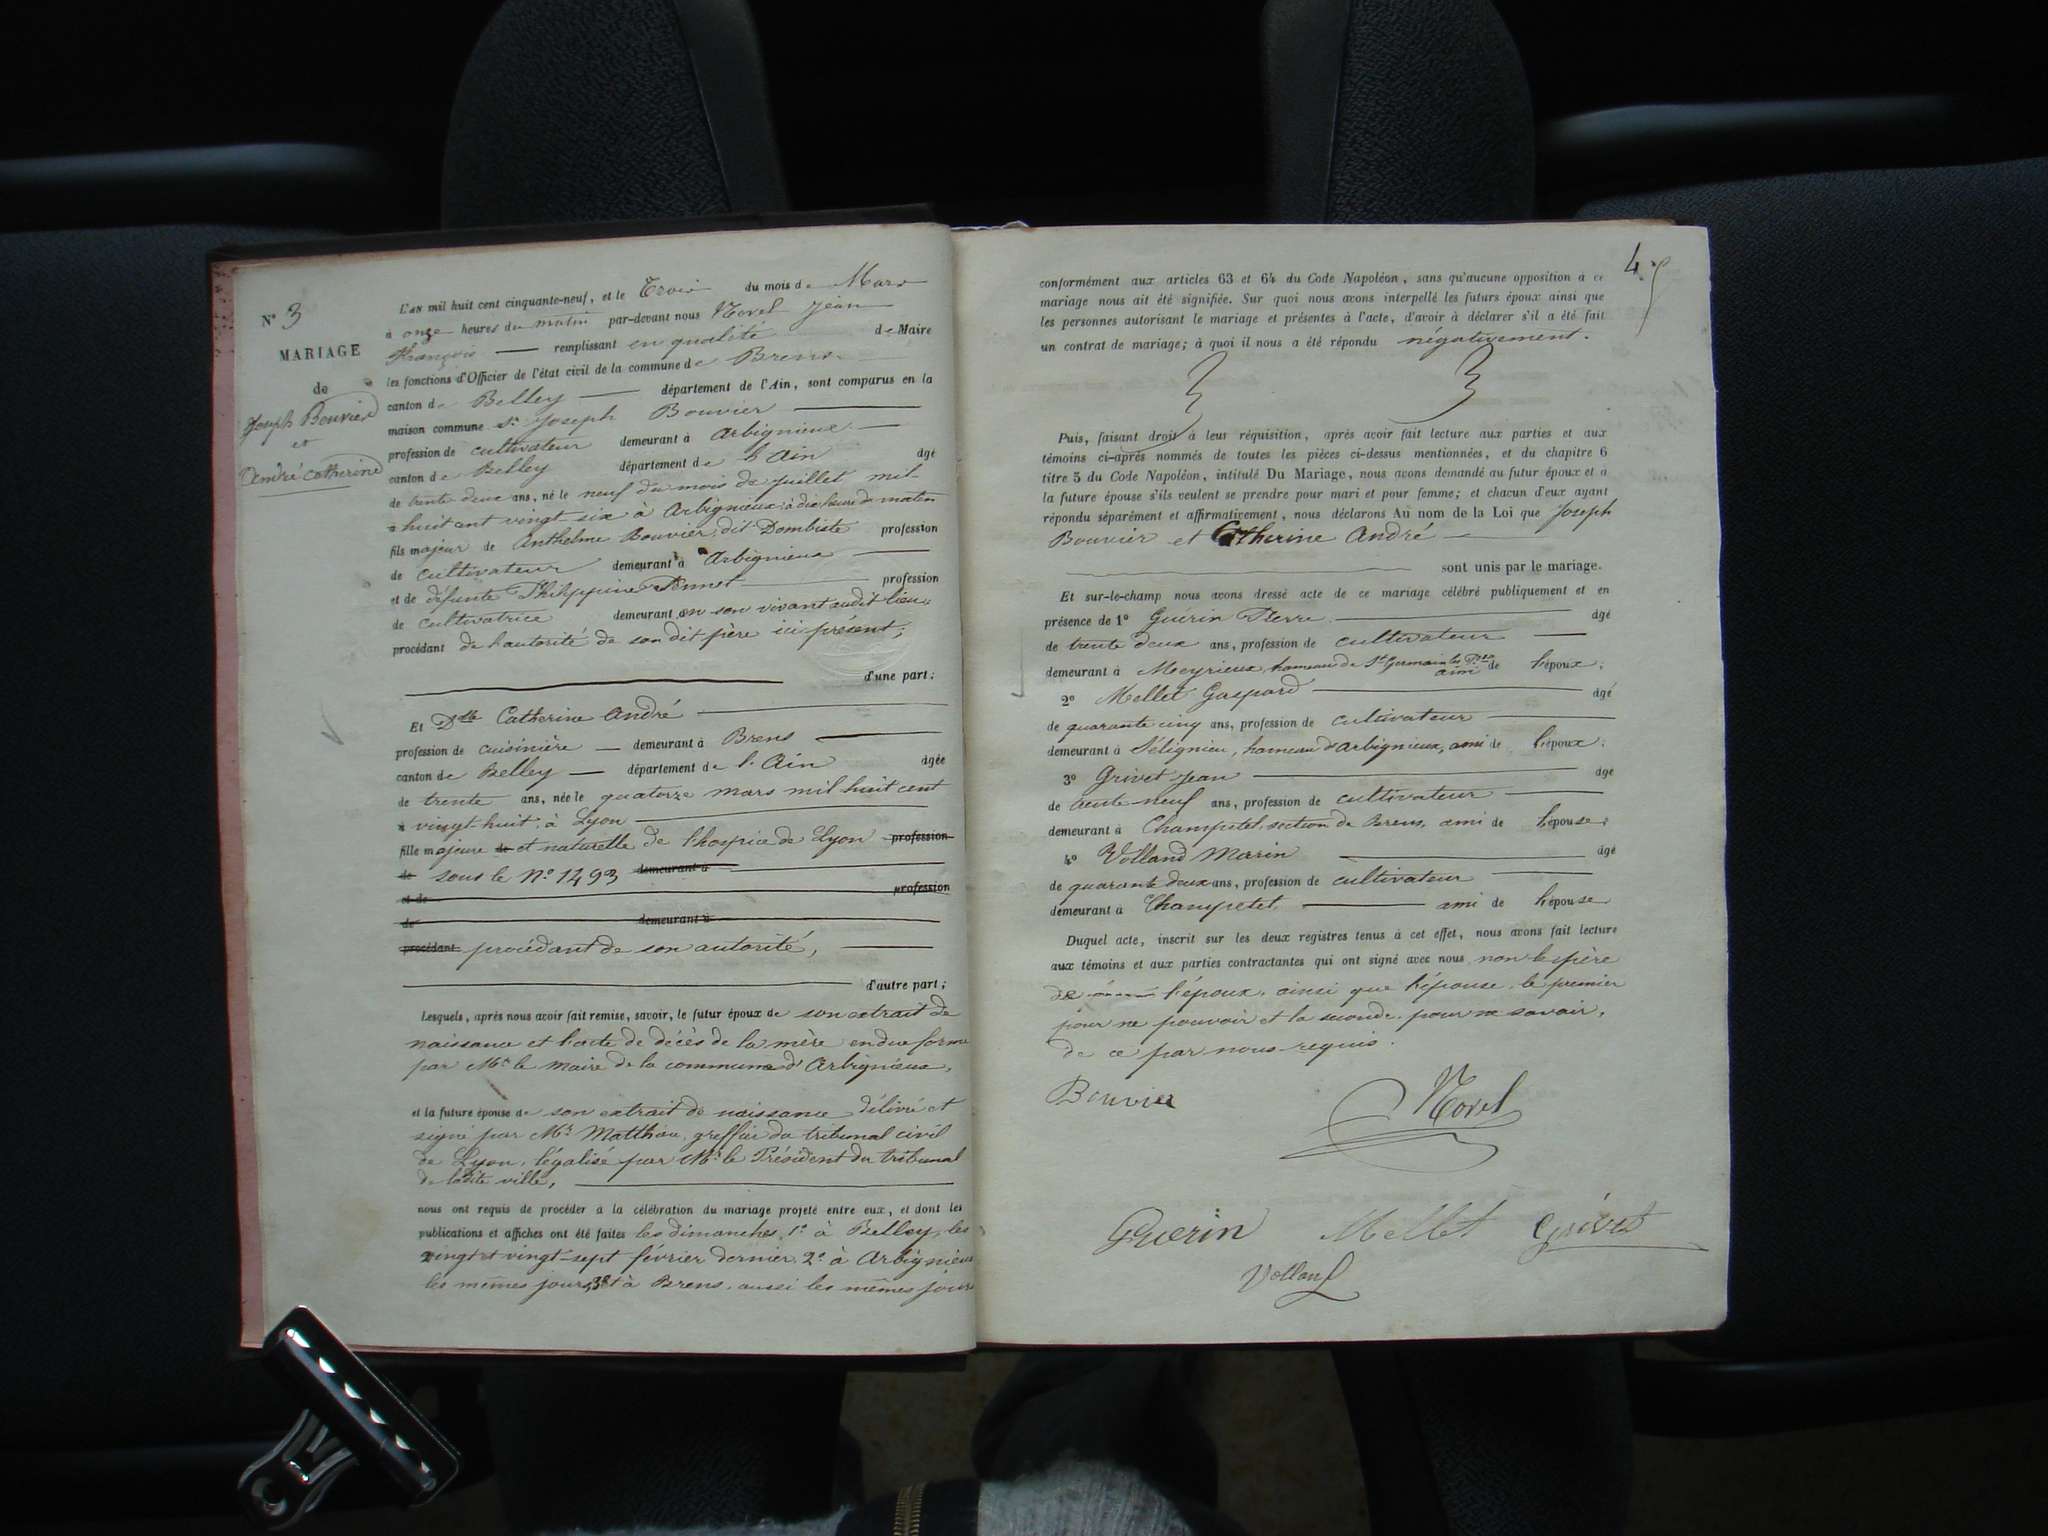 N° 3
MARIAGE
de
Joseph Bouvier
et
André Catherine
L'an mil huit cent cinquante-neuf, et le Trois du mois de Mars
à onze heures du matin par-devant nous Novel Jean
François remplissant en qualité de Maire
les fonctions d'Officier de l'état civil de la commune de Brens
canton de Belley département de l'Ain, sont comparus en la
maison commune Sr Joseph Bouvier
profession de cultivateur demeurant à Arbignieux
canton de Belley département de l'Ain âgé
de trente deux ans, né le neuf du mois de juillet mil
huit cent vingt-six à Arbignieux à dix heures du matin
fils majeur de Anthelme Bouvier, dit Dombiste profession
de cultivateur demeurant à Arbignieux
et de défunte Philippine profession
de cultivatrice demeurant en son vivant audit lieu,
procédant de l'autorité de son dit père ici présent;
d'une part;
Et Dlle Catherine André
profession de cuisinière demeurant à Brens
canton de Belley département de l'Ain âgée
de trente ans, née le quatorze mars mil huit cent
vingt-huit, à Lyon
fille majeure de et naturelle de l'hospice de Lyon profession
de sous le N° 1493 demeurant à
et de profession
de demeurant à
procédant procédant de son autorité,
d'autre part;
Lesquels, après nous avoir fait remise, savoir, le futur époux de son extrait de
naissance et l'acte de décès de la mère en due forme
par Mr le maire de la commune d'Arbignieux,
et la future épouse de son extrait de naissance délivré et
signé par Mr Matthieu, greffier du tribunal civil
de Lyon, légalisé par Mr le Président du tribunal
de ladite ville,
nous ont requis de procéder à la célébration du mariage projeté entre eux, et dont les
publications et affiches ont été faites les dimanches, 1° à Belley, les
vingt et vingt-sept février dernier, 2° à Arbignieux
les mêmes jours, 3° et à Brens, aussi les mêmes jours
4
conformément aux articles 63 et 64 du Code Napoléon, sans qu'aucune opposition à ce
mariage nous ait été signifiée. Sur quoi nous avons interpellé les futurs époux ainsi que
les personnes autorisant le mariage et présentes à l'acte, d'avoir à déclarer s'il a été fait
un contrat de mariage; à quoi il nous a été répondu négativement.
Puis, faisant droit à leur réquisition, après avoir fait lecture aux parties et aux
témoins ci-après nommés de toutes les pièces ci-dessus mentionnées, et du chapitre 6
titre 5 du Code Napoléon, intitulé Du Mariage, nous avons demandé au futur époux et a
la future épouse s'ils veulent se prendre pour mari et pour femme; et chacun d'eux ayant
répondu séparément et affirmativement, nous déclarons Au nom de la Loi que Joseph
Bouvier et Catherine André
sont unis par le mariage.
Et sur-le-champ nous avons dressé acte de ce mariage célébré publiquement et en
présence de 1° Guérin Pierre âgé
de trente deux ans, profession de cultivateur
demeurant à Meyrieux, hameau de St Germain les Pses ami de l'époux;
2° Mellet Gaspard âgé
de quarante cinq ans, profession de cultivateur
demeurant à Sélignieu, hameau d'Arbignieux, ami de l'époux;
3° Grivet Jean âgé
de trente-neuf ans, profession de cultivateur
demeurant à Champetel, section de Brens, ami de l'épouse;
4° Volland Marin âgé
de quarante deux ans, profession de cultivateur
demeurant à Champetel, ami de l'épouse
Duquel acte, inscrit sur les deux registres tenus à cet effet, nous avons fait lecture
aux témoins et aux parties contractantes qui ont signé avec nous, non le père
de l'époux, ainsi que l'épouse, le premier
pour ne pouvoir et la seconde, pour ne savoir,
de ce par nous requis.
Bouvier
Novel
Guerin Mellet Grivet
Volland